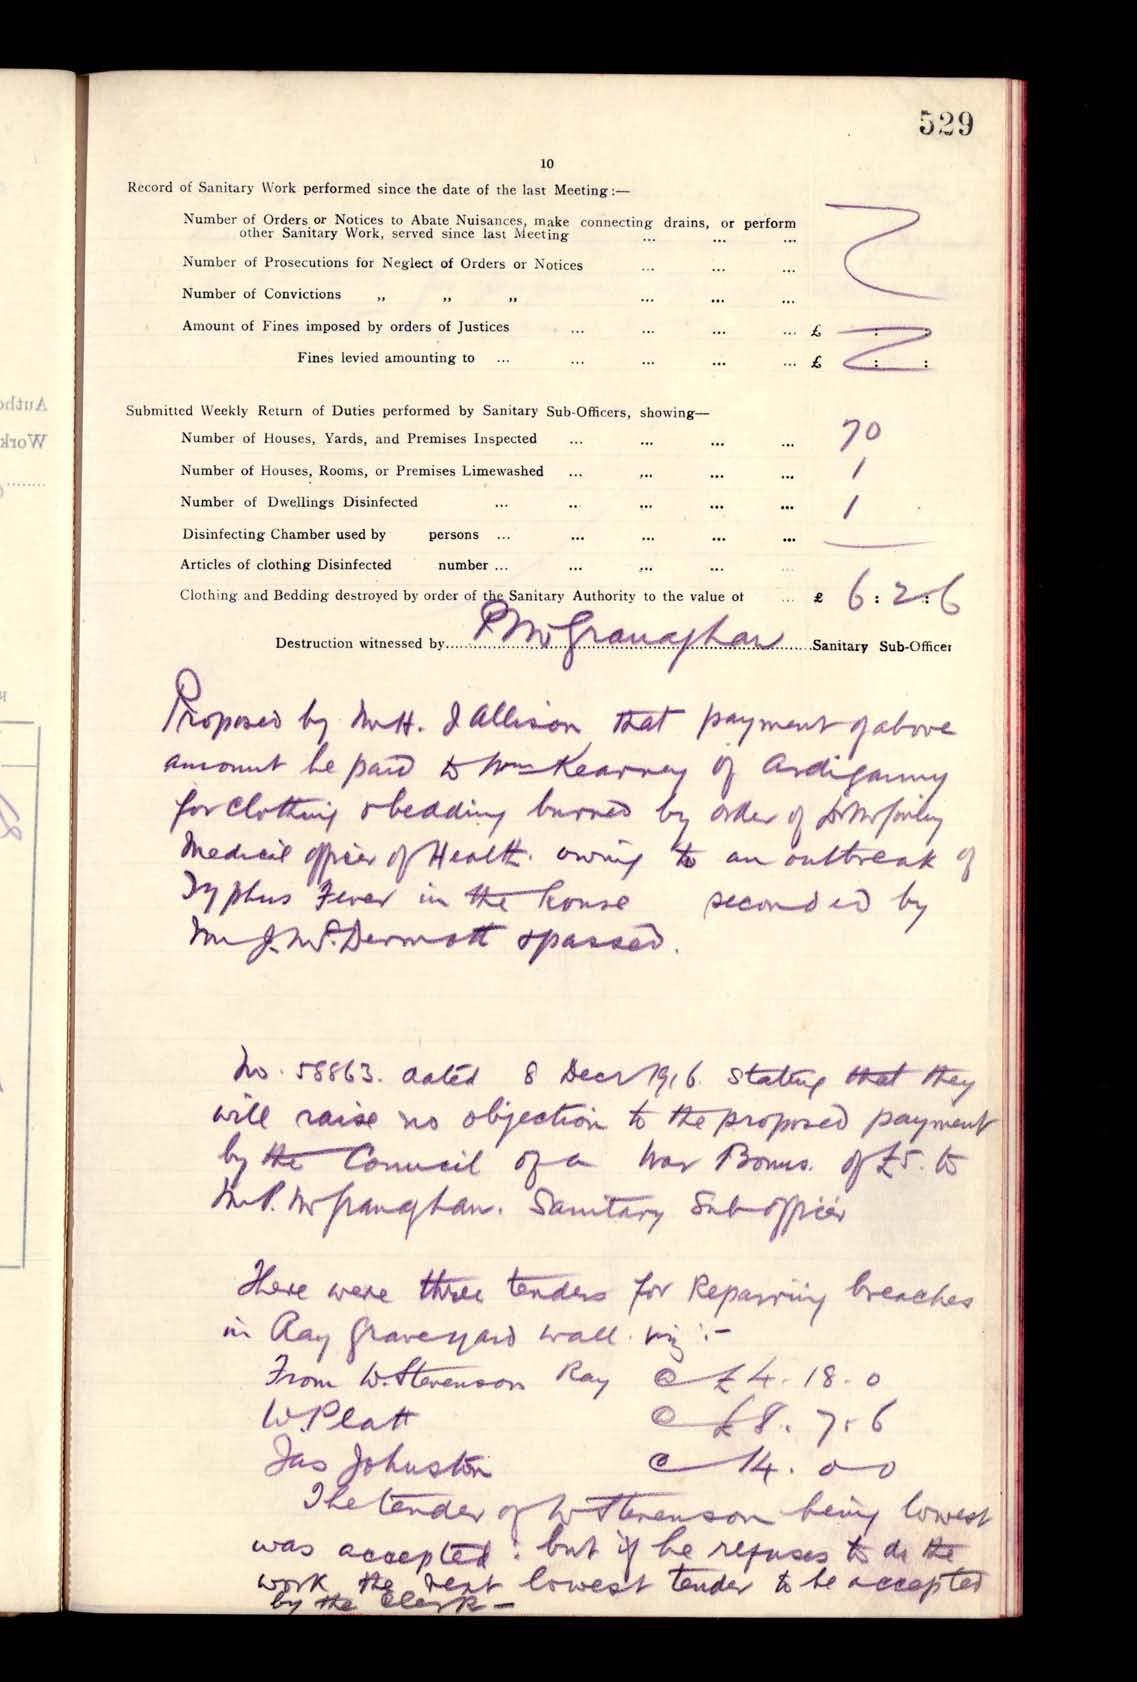 529
10
Record of Sanitary Work performed since the date of the last Meeting:—
Number of Orders or Notices to Abate Nuisances, make connecting drains, or perform
other Sanitary Work, served since last Meeting ... ... ...
Number of Prosecutions for Neglect of Orders or Notices ... ... ...
Number of Convictions „ „ „ ... ... ...
Amount of Fines imposed by orders of Justices ... ... ... ... £ : :
Fines levied amounting to ... ... ... ... ... £ : :
Submitted Weekly Return of Duties performed by Sanitary Sub-Officers, showing—
Number of Houses, Yards, and Premises Inspected ... ... ... ... 70
Number of Houses, Rooms, or Premises Limewashed ... ... ... ... 1
Number of Dwellings Disinfected ... ... ... ... ... 1
Disinfecting Chamber used by persons ... ... ... ... ... —
Articles of clothing Disinfected number ... ... ... ... ...
Clothing and Bedding destroyed by order of the Sanitary Authority to the value of ... £ 6 : 2 : 6
Destruction witnessed by P McGranaghan Sanitary Sub-Officer
Proposed by Mr H. J Allison that payment of above
amount be paid to Wm Kearney of Ardiganny
for clothing & bedding burned by order of Dr McGinley
Medical Officer of Health owing to an outbreak of
Typhus Fever in the house seconded by
Mr J. McDermott & passed.
No. 58863. dated 8 Decr 1916 stating that they
will raise no objection to the proposed payment
by the Council of a War Bonus. of £5. to
Mr P. McGranaghan. Sanitary Sub officer
There were three tenders for Repairing breaches
in Ray Graveyard wall. viz :-
From W. Stevenson Ray @ £4. 18. 0
W. Platt @ £8. 7. 6
Jas Johnston @ 14. 0 0
The tender of W Stevenson being lowest
was accepted : but if he refuses to do the
work the next lowest tender to be accepted
by the Clerk —
Autho
Work